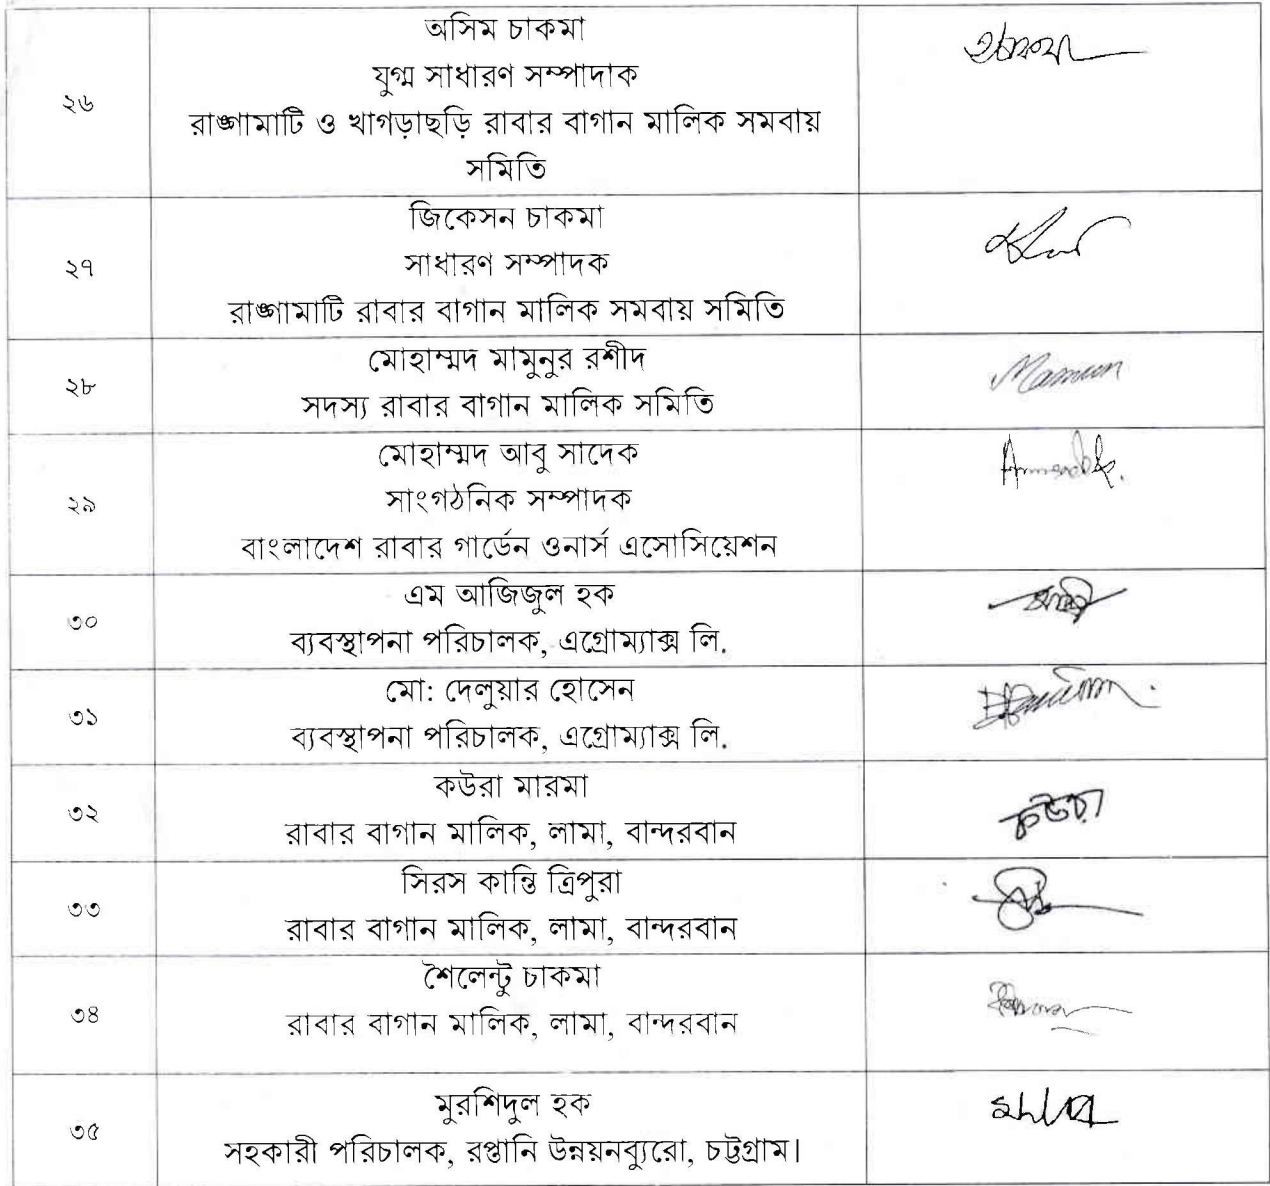 ২৬
অসিম চাকমা
যুগ্ম সাধারণ সম্পাদাক
রাঙ্গামাটি ও খাগড়াছড়ি রাবার বাগান মালিক সমবায়
সমিতি
২৭
জিকেসন চাকমা
সাধারণ সম্পাদক
রাঙ্গামাটি রাবার বাগান মালিক সমবায় সমিতি
২৮
মোহাম্মদ মামুনুর রশীদ
সদস্য রাবার বাগান মালিক সমিতি
Mamun
২৯
মোহাম্মদ আবু সাদেক
সাংগঠনিক সম্পাদক
বাংলাদেশ রাবার গার্ডেন ওনার্স এসোসিয়েশন
৩০
এম আজিজুল হক
ব্যবস্থাপনা পরিচালক, এগ্রোম্যাক্স লি.
৩১
মো: দেলুয়ার হোসেন
ব্যবস্থাপনা পরিচালক, এগ্রোম্যাক্স লি.
৩২
কউরা মারমা
রাবার বাগান মালিক, লামা, বান্দরবান
৩৩
সিরস কান্তি ত্রিপুরা
রাবার বাগান মালিক, লামা, বান্দরবান
৩৪
শৈলেন্টু চাকমা
রাবার বাগান মালিক, লামা, বান্দরবান
৩৫
মুরশিদুল হক
সহকারী পরিচালক, রপ্তানি উন্নয়নব্যুরো, চট্টগ্রাম।